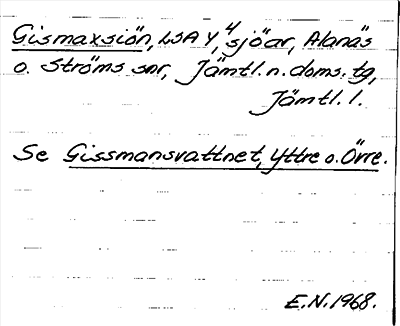 Gismaxsiön, LSA Y, 4 sjöar, Alanäs
o. Ströms snr, Jämtl. n. doms. tg,
Jämtl. l.
Se Gissmansvattnet, Yttre o. Övre.
E.N. 1968.